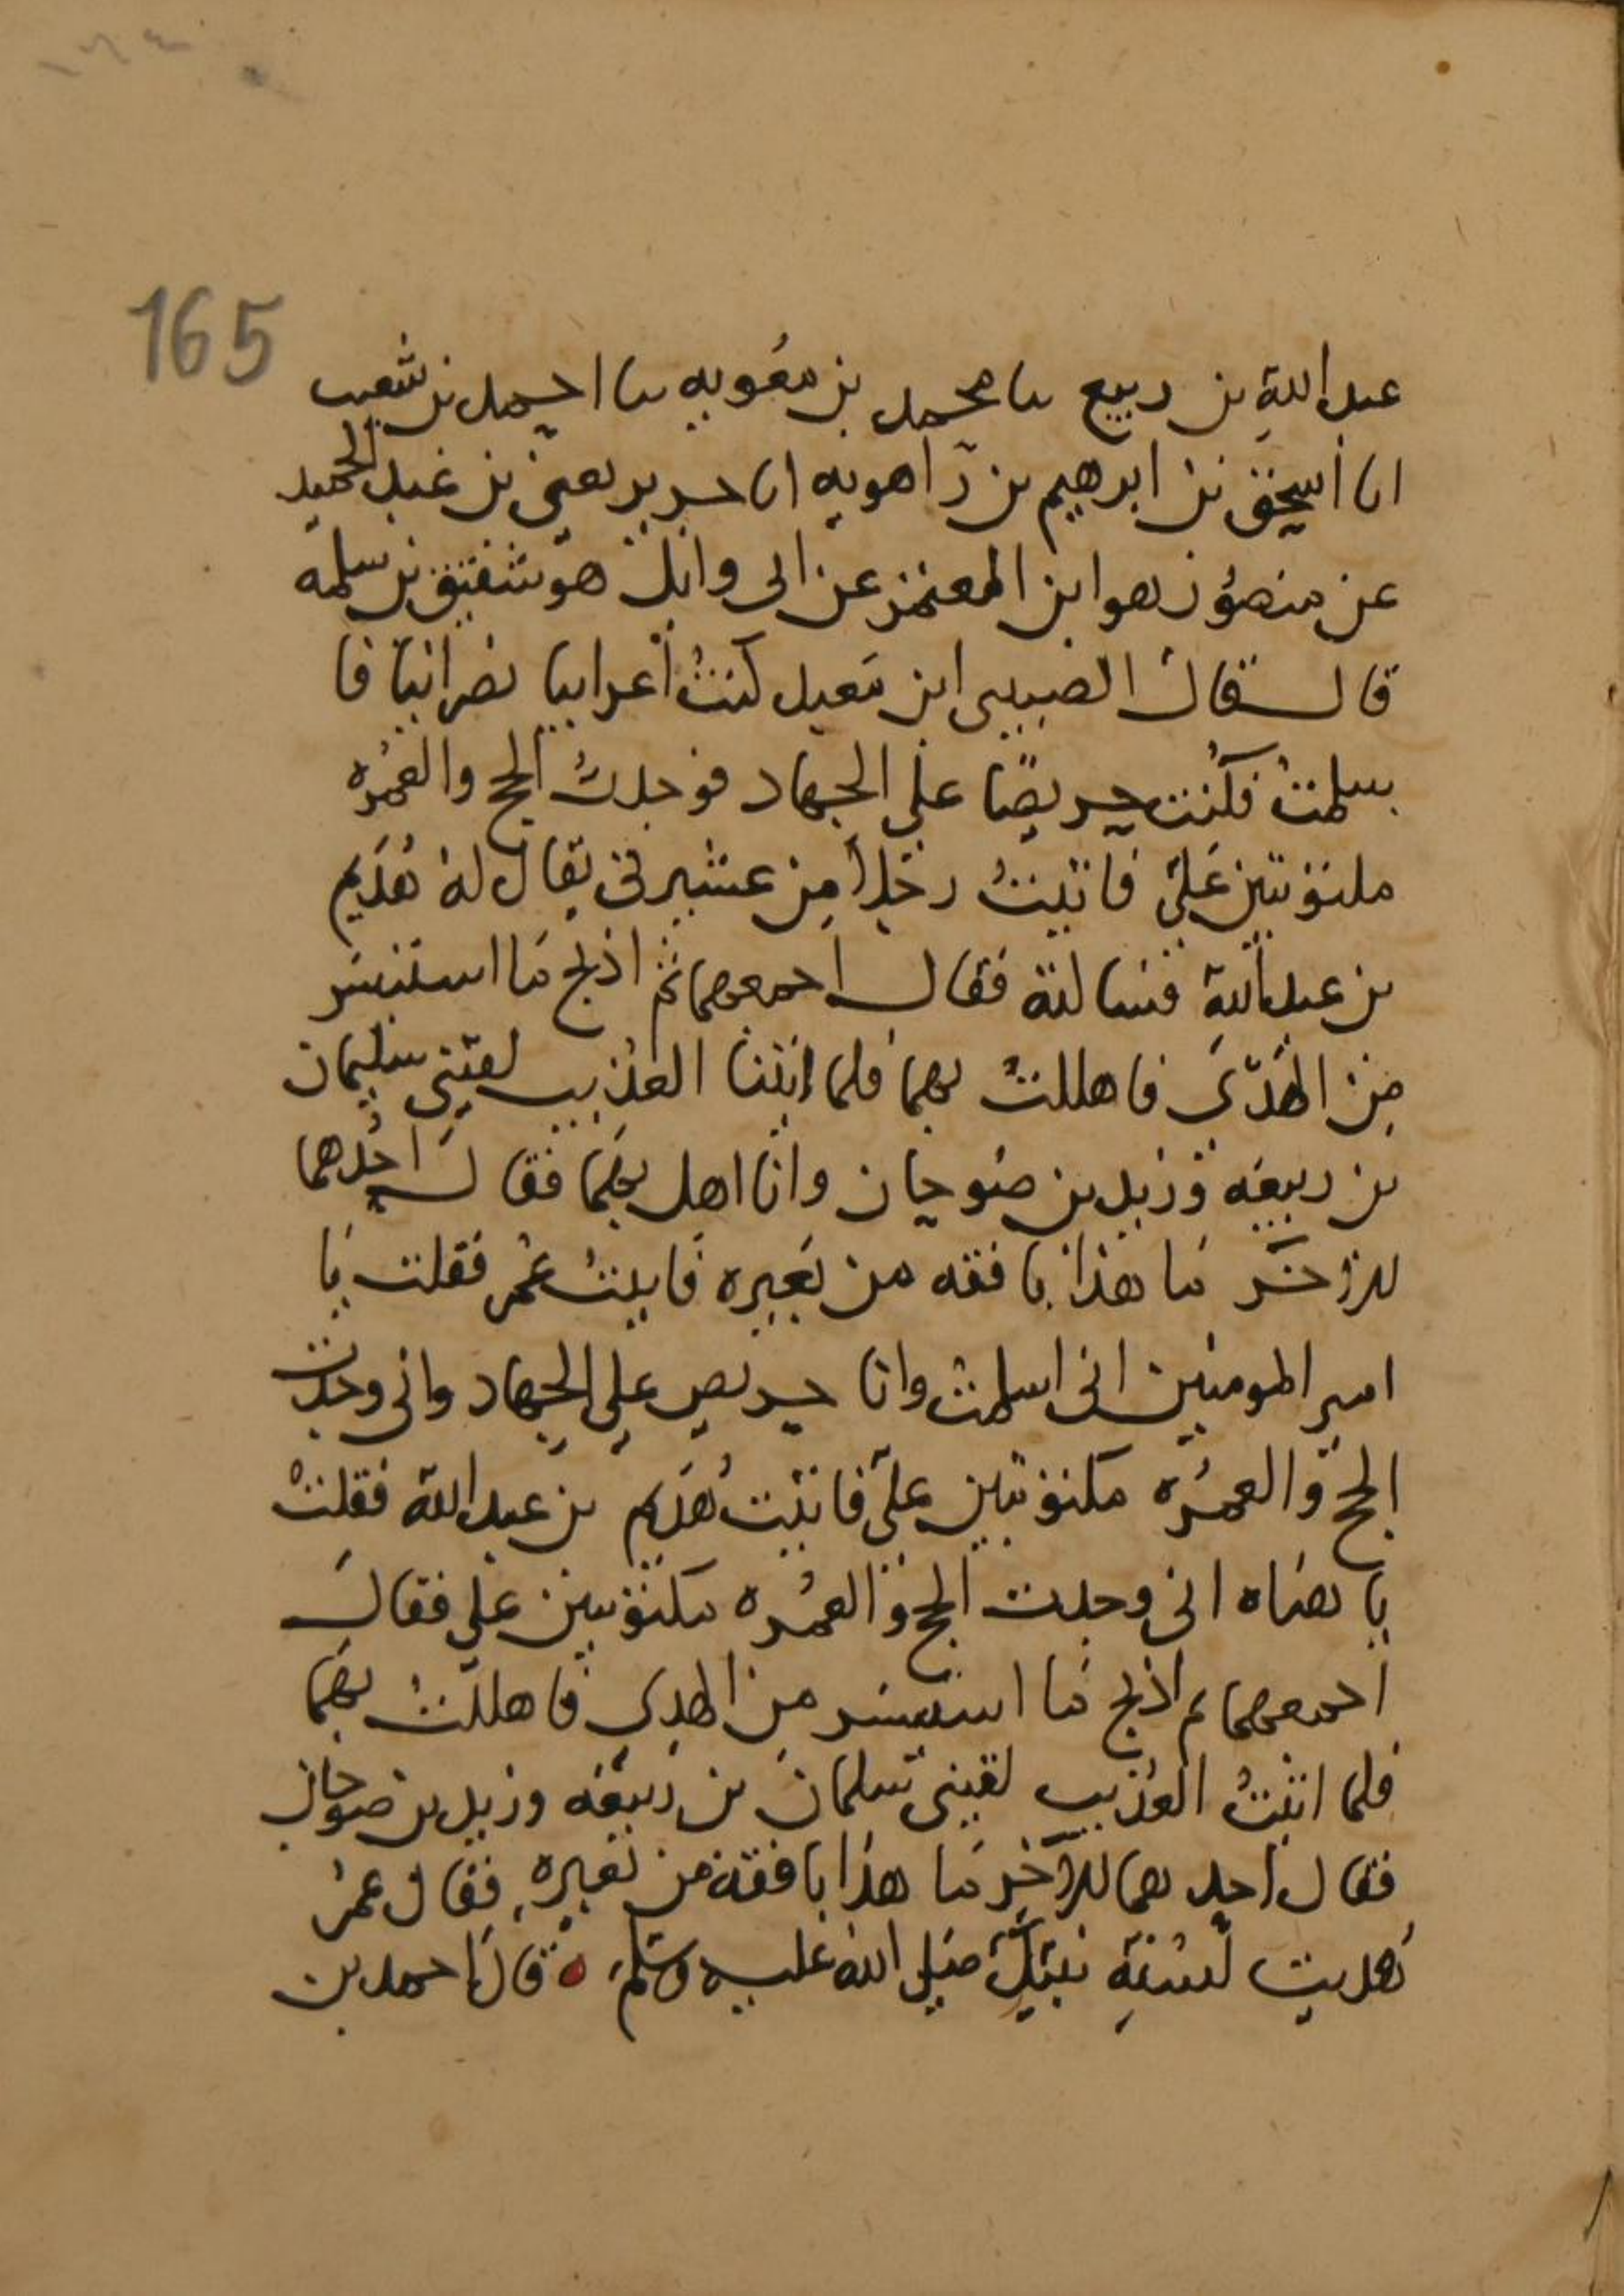 165
عبد الله بن ربيع نا محمد بن معويه نا احمد بن شعيب
انا اسحق بن ابرهيم بن راهويه انا جرير يعني بن عبد الحميد
عن منصور هو ابن المعتمر عن ابي وائل هو شقيق بن سلمه
قال قال الصبي ابن معبد كنتُ أعرابيا نصرانيا فا
سلمتُ فكُنت حريصًا علي الجهاد فوجدتُ الحج والعُمرُه
مكتوبتين عَليّ فاتيتُ رجلاً مِن عشيرتي يقال لهُ هُدَيم
بن عبد اللهِ فسالته فقال اجمعهما ثم اذبح مَا استيسَر
مِن الهَدّي فاهللتُ بهما فلما اتيتا العُذيب لقيني سليمان
بن ربيعه وزيد بن صُوحان وانا اهل بهمَا فقال احدهما
للاخَر مَا هذا بافقه من بَعيره فاتيتُ عُمر فقلت يَا
امير المومنين اني اسلمتُ وانا حريص علي الجهاد واني وجدت
الحج والعمُره مكتوبتين عليّ فاتيت هُدَيم بن عبد الله فقلتْ
يا هنَاه اني وجدت الحج والعمُره مكتوبتين علي فقالَ
اجمعهما ثم اذبح مَا استيسَر مِن الهدي فاهللتُ بهمَا
فلما اتيتُ العُذيب لقيني سلمان بن ربيعَه وزيد بن صُوحان
فقال احدهما للآخِر مَا هذا بافقه من بَعيره فقال عمرُ
هُديت لسُنةِ نبيكَ صَلي الله عليه وسَلم ه قال احمد بن